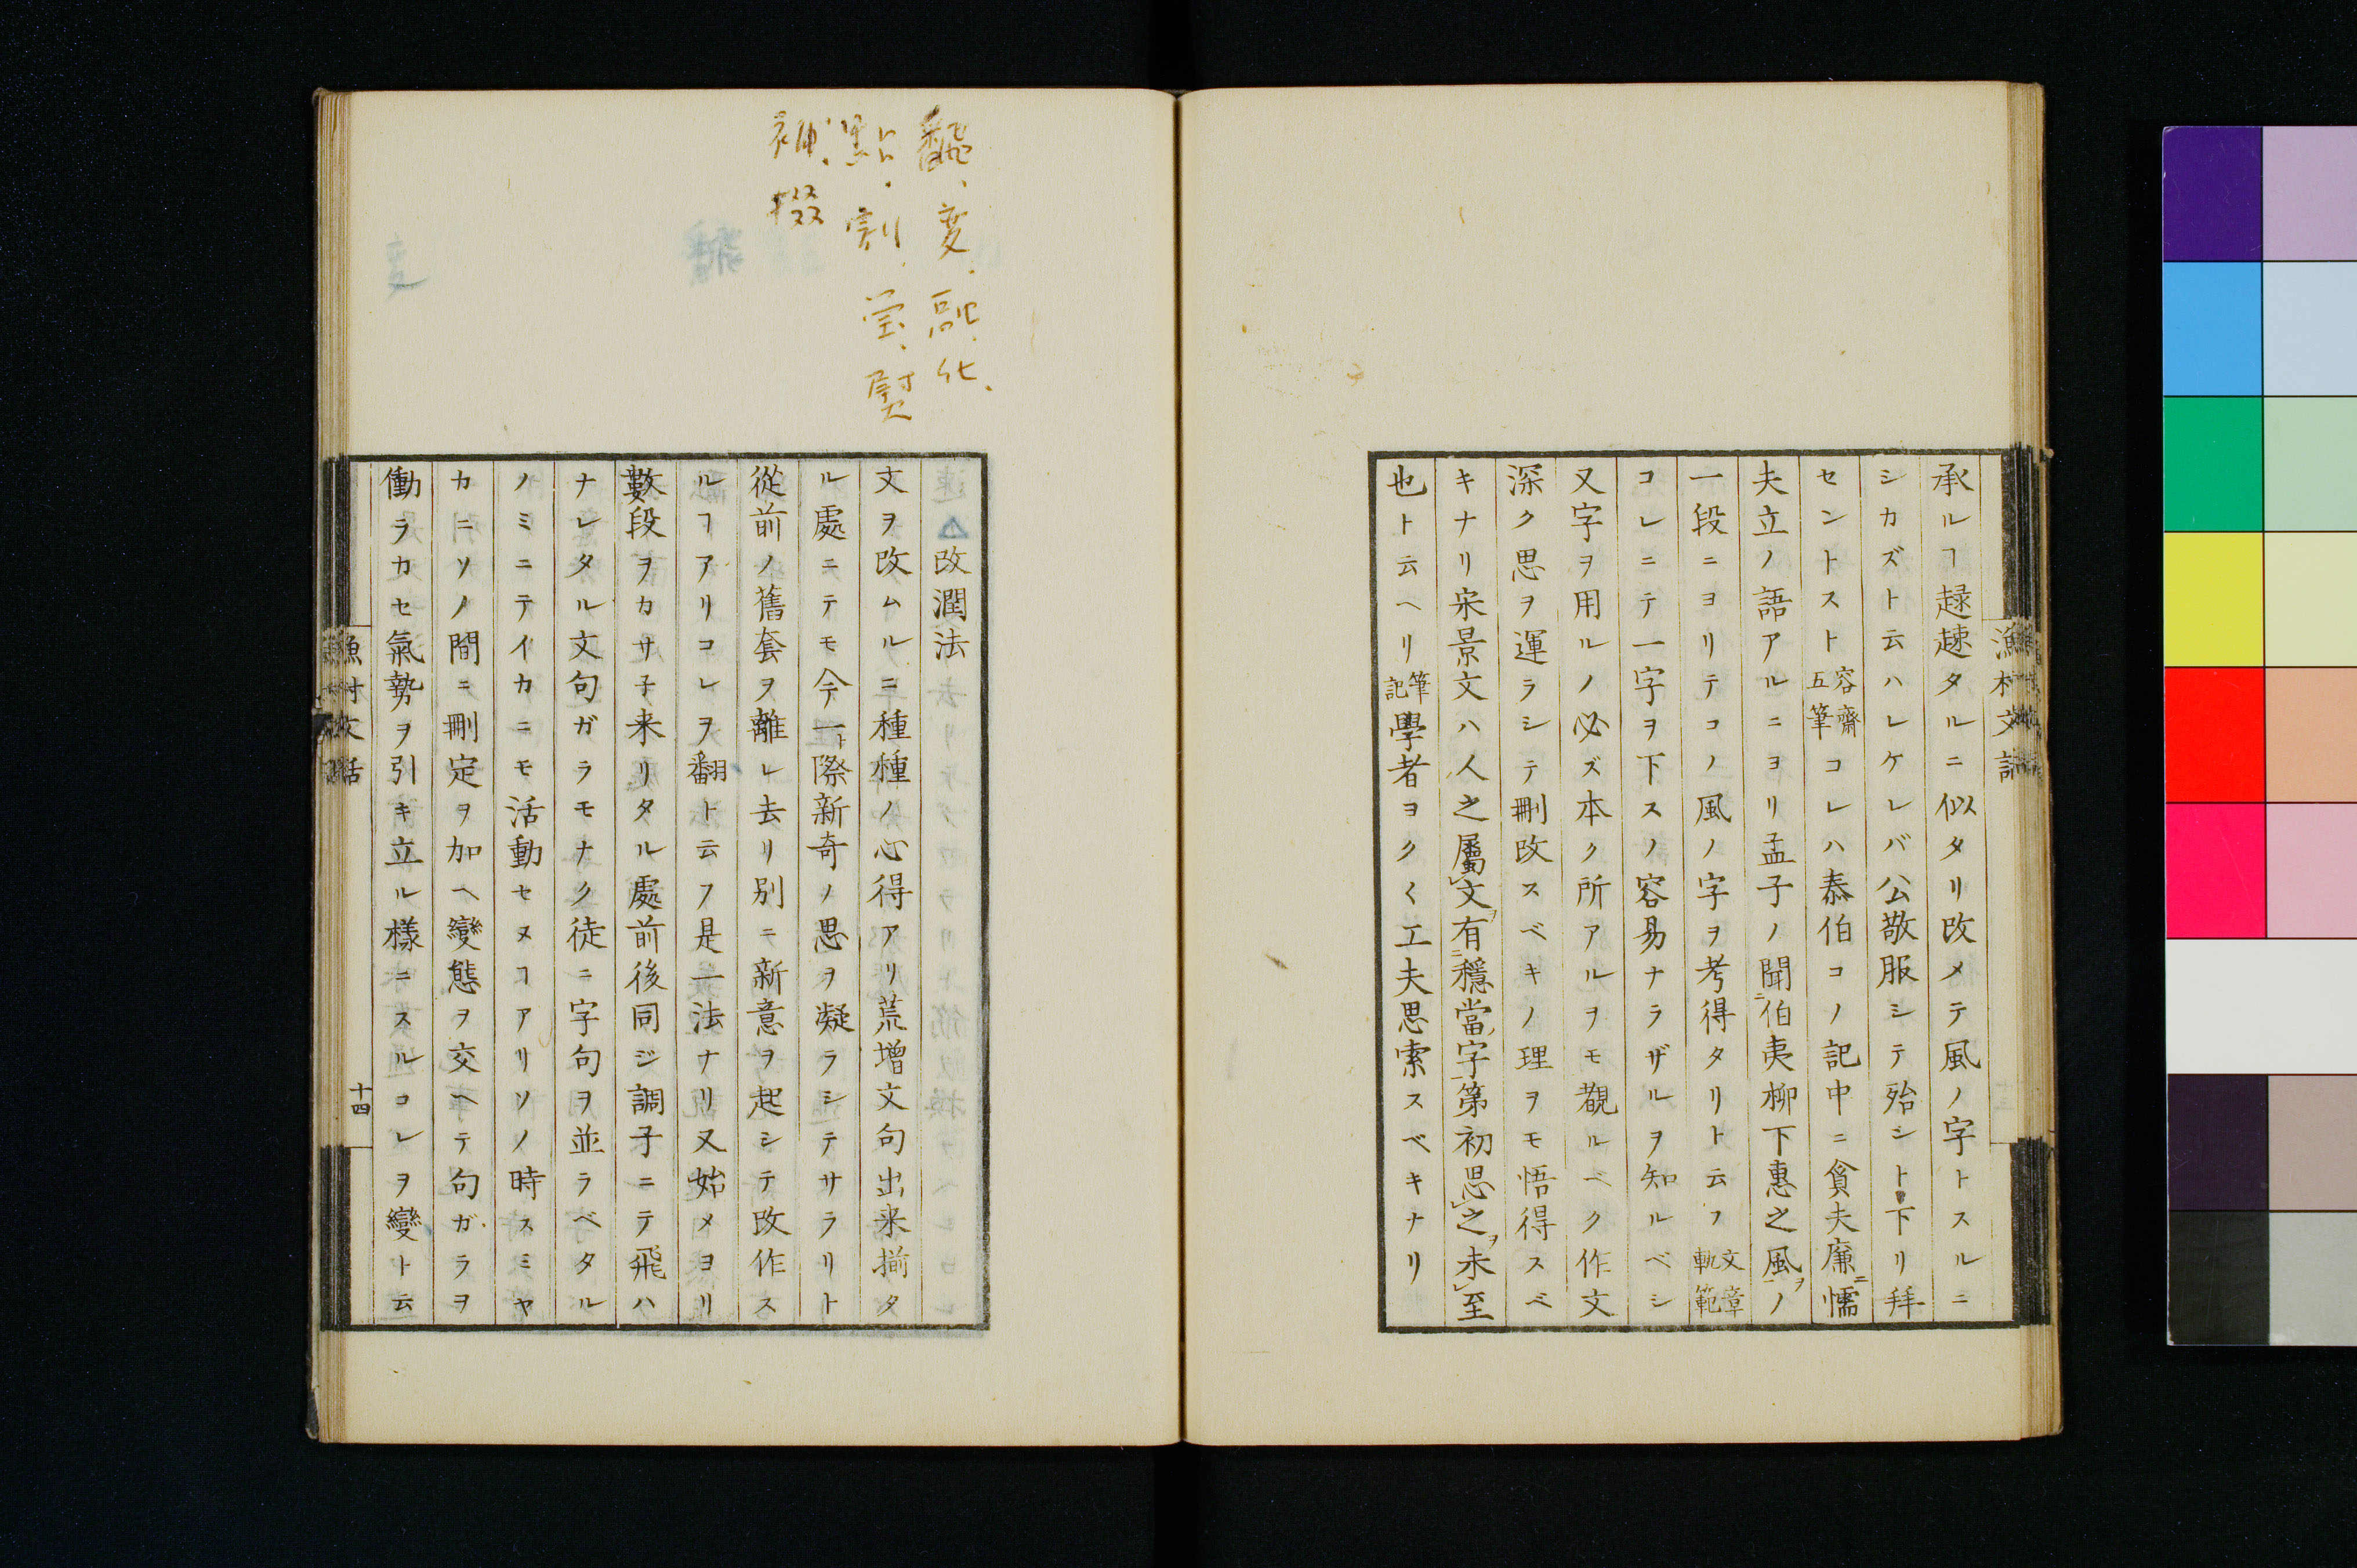 承ルヿ趢趚タルニ似タリ改メテ風ノ字トスルニ
シカズト云ハレケレバ公敬服シテ殆シト下リ拜
セントスト容齋五筆コレハ泰伯コノ記中ニ貪夫廉懦
夫立ノ語アルニヨリ孟子ノ聞伯夷柳下惠之風ヲノ
一段ニヨリテコノ風ノ字ヲ考得タリト云フ文章軌範
コレニテ一字ヲ下スノ容易ナラザルヲ知ルベシ
又字ヲ用ルノ必ズ本ク所アルヲモ觀ルベク作文
深ク思ヲ運ラシテ刪改スベキノ理ヲモ悟得スベ
キナリ宋景文ハ人之屬文有穩當字第初思之未至
也ト云ヘリ筆記學者ヨクく工夫思索スベキナリ
漁村文話
翻、変、融、化、
點、割、瑩、熨
補、掇
改潤法
文ヲ改ムルニ種種ノ心得アリ荒增文句出来揃タ
ル處ニテモ今一ト際新奇ノ思ヲ凝ラシテサラリト
從前ノ舊套ヲ離レ去リ別ニ新意ヲ起シテ改作ス
ルヿアリコレヲ翻ト云フ是一法ナリ又始メヨリ
數段ヲカサ子来リタル處前後同ジ調子ニテ飛ハ
ナレタル文句ガラモナク徒ニ字句ヲ並ラベタル
ノミニテイカニモ活動セヌヿアリソノ時スミヤ
カニソノ間ニ刪定ヲ加ヘ變態ヲ交ヘテ句ガラヲ
働ラカセ氣勢ヲ引キ立ル樣ニスルコレヲ變ト云
漁村文話
十四